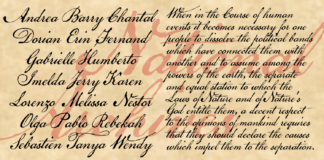 Andrea Barry Chantal
Dorian Erin Fernand
Gabrielle Humberto
Imelda Jerry Karen
Lorenzo Melissa Nestor
Olga Pablo Rebekah
Sebastien Tanya Wendy
When in the Course of human
events it becomes necessary for one
people to dissolve the political bonds
which have connected them with
another and to assume among the
powers of the earth, the separate
and equal station to which the
Laws of Nature and of Nature's
God entitle them, a decent respect
to the opinions of mankind requires
that they should declare the causes
which impel them to the separation.